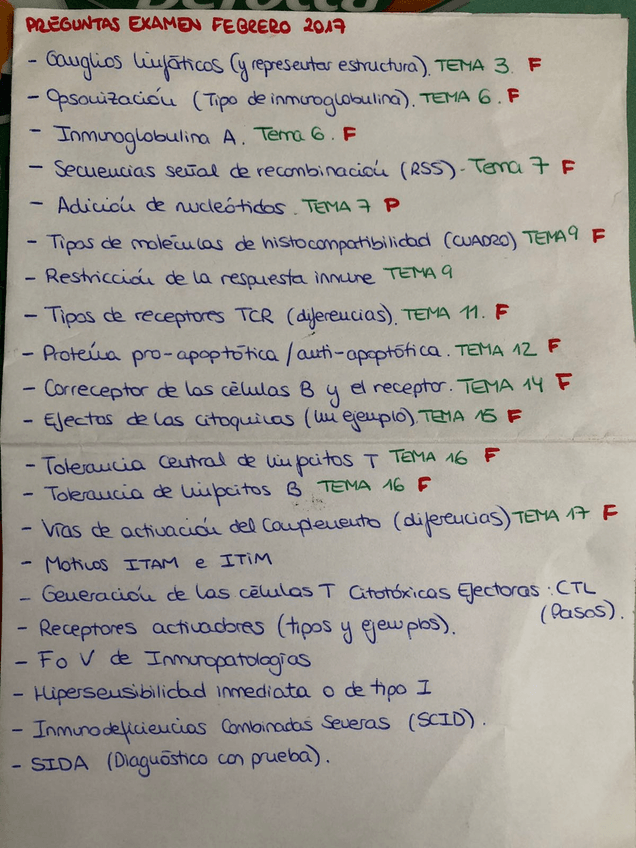 PREGUNTAS EXAMEN FEBRERO 2017
- Ganglios linfáticos (y representar estructura). TEMA 3. F
- Opsonización (Tipo de inmunoglobulina). TEMA 6. F
- Inmunoglobulina A. Tema 6. F
- Secuencias señal de recombinación (RSS). Tema 7 F
- Adición de nucleótidos. TEMA 7 P
- Tipos de moléculas de histocompatibilidad (CUADRO) TEMA 9 F
- Restricción de la respuesta inmune TEMA 9
- Tipos de receptores TCR (diferencias). TEMA 11. F
- Proteína pro-apoptótica / anti-apoptótica. TEMA 12 F
- Correceptor de las células B y el receptor. TEMA 14 F
- Efectos de las citoquinas (un ejemplo). TEMA 15 F
- Tolerancia Central de linfocitos T TEMA 16 F
- Tolerancia de linfocitos B TEMA 16 F
- Vías de activación del Complemento (diferencias) TEMA 17 F
- Motivos ITAM e ITiM
- Generación de las células T Citotóxicas Efectoras : CTL
(Pasos).
- Receptores activadores (tipos y ejemplos).
- F o V de Inmunopatologías
- Hipersensibilidad inmediata o de tipo I
- Inmunodeficiencias Combinadas Severas (SCID).
- SIDA (Diagnóstico con prueba).